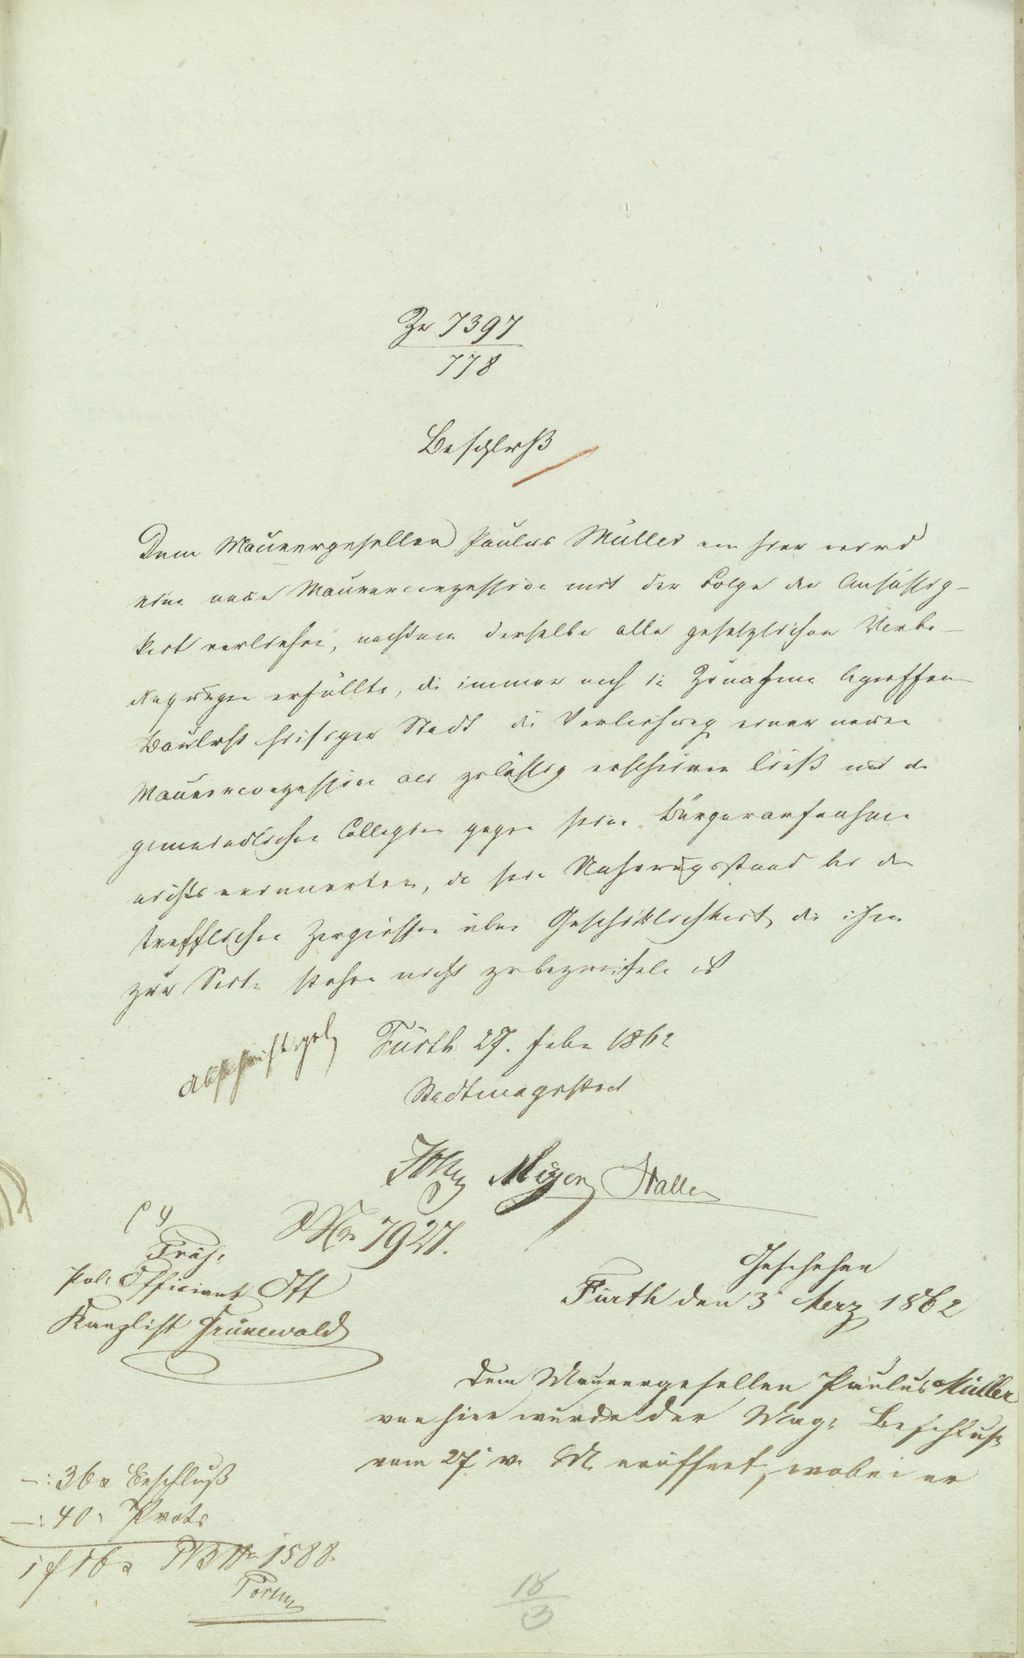 Zu 7397
778
Beschluß
Dem Maurergesellen Paulus Müller von hier wird
eine neue Maurerconzession mit der Folge der Ansässig-
keit verliehen, nachdem derselbe alle gesetzlichen Vorbe-
dingungen erfüllte, die immer noch in Zunahme begriffene
Baulust hiesiger Stadt die Verleihung einer neuen
Maurerconzession als zulässig erscheinen ließ und die
gemeindlichen Collegien gegen seine Bürgeraufnahme
nichts erinnerten, da sein Nahrungsstand bei den
trefflichen Zeugnissen über Geschicklichkeit, die ihm
zur Seite stehen nicht zu bezweifeln ist
Fürth 27. Febr 1862
Stadtmagistrat
Meyer Haller
Nr 7927.
Präs.
Pol. Officiant Ott
Kanzlist Grünewald
Geschehen
Fürth den 3 Merz 1862
Dem Maurergesellen Paulus Müller
von hier wurde der Mag. Beschluß
vom 27 v. M. eröffnet, wobei er
—: 36 x Beschluß
—: 40 x Prot.
1 f 16 x Nr 1588.
18
3